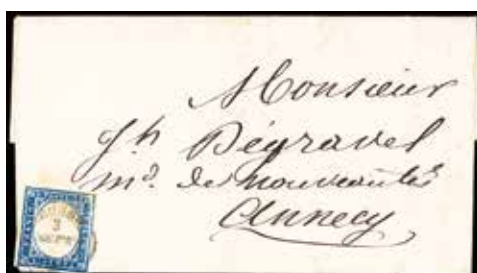 Monsieur
Jh Dégravel
md. de nouveautés
Annecy
3